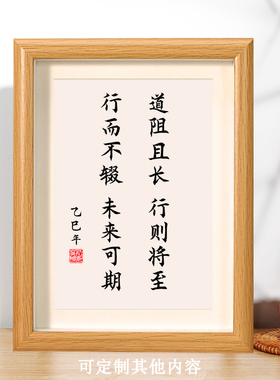 道阻且长 行则将至
行而不辍 未来可期
乙巳年
可定制其他内容